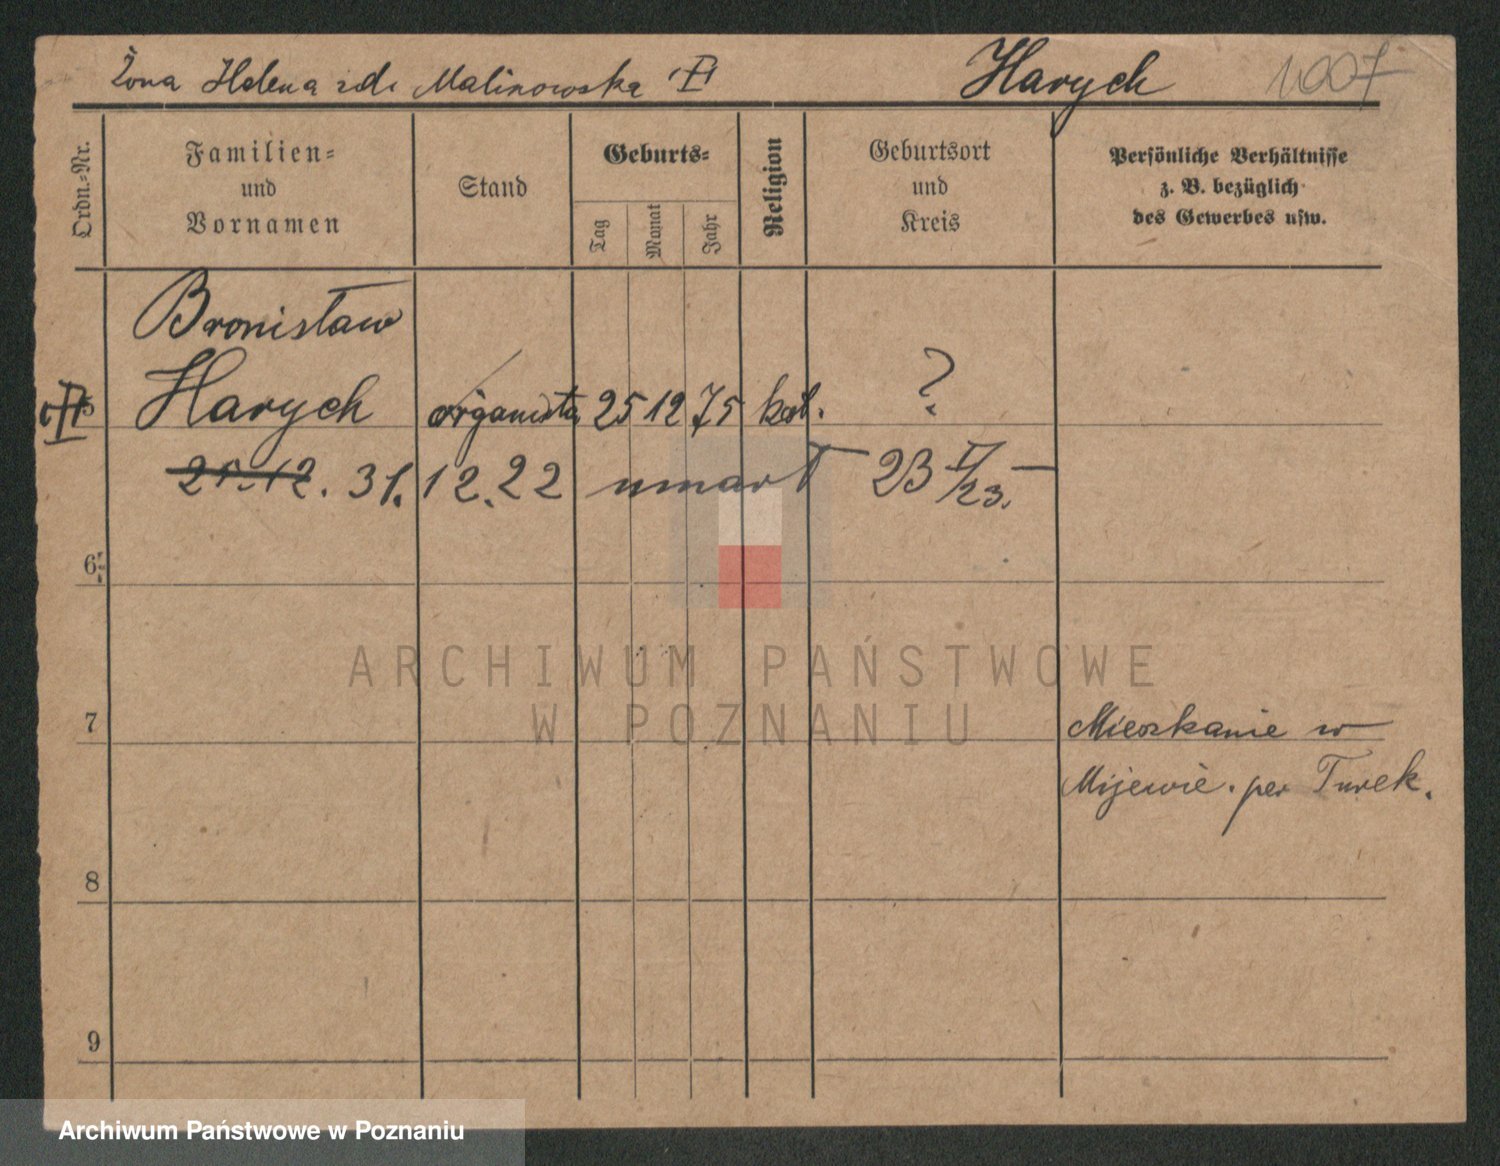 Żona Helena zd. Malinowska Harych 1007
Ordn.-Nr.
Familien-
und
Vornamen
Stand
Geburts-
Tag
Monat
Jahr
Religion
Geburtsort
und
Kreis
Persönliche Verhältnisse
z. B. bezüglich
des Gewerbes usw.
Bronisław
5 Harych organista 25 12 75 kat. ?
31.12.22 umarł 23 I/23.
6
ARCHIWUM PAŃSTWOWE
W POZNANIU
7 Mieszkanie w
Mijewie. per Turek.
8
9
Archiwum Państwowe w Poznaniu